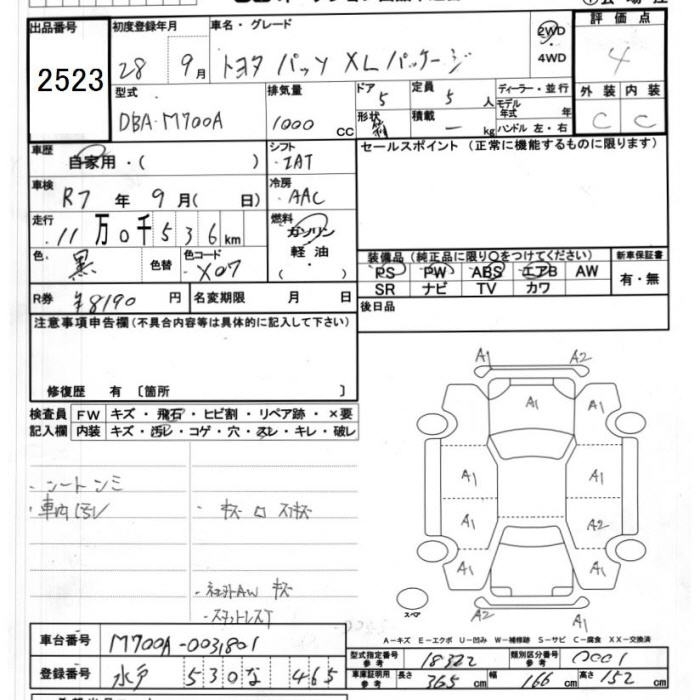 出品番号
2523
初度登録年月
28 9月
車名・グレード
トヨタ パッソ XLパッケージ
2WD
4WD
評価点
4
外装 内装
C C
型式
DBA-M700A
排気量
1000 CC
ドア
5
定員
5 人
形状
積載
— kg
ディーラー・並行
モデル年式 年
ハンドル 左・右
車歴
自家用・( )
シフト
IAT
車検
R7 年 9月( 日)
冷房
AAC
走行
11万0千536km
燃料
ガソリン
軽油
( )
色
黒
色替
色コード
X07
R券
¥8190 円
名変期限 月 日
セールスポイント (正常に機能するものに限ります)
装備品 (純正品に限り○をつけてください)
PS PW ABS エアB AW
SR ナビ TV カワ
新車保証書
有・無
後日品
注意事項申告欄(不具合内容等は具体的に記入して下さい)
修復歴 有 〔箇所 〕
検査員記入欄
FW キズ・飛石・ヒビ割・リペア跡・×要
内装 キズ・汚レ・コゲ・穴・スレ・キレ・破レ
・シートシミ
・車内汚レ
・キズ ロ スレキズ
キズ
A1 A2
A1 A1
A1 A1
A1 A2
A1 A1 A1
A2 A1
スペア
A-キズ E-エクボ U-凹み W-補修跡 S-サビ C-腐食 XX-交換済
車台番号
M700A-0031801
登録番号
水戸 530 な 465
型式指定番号
参考
18322
類別区分番号
参考
0001
車庫証明用
参考
長さ 365 cm
幅 166 cm
高さ 152 cm